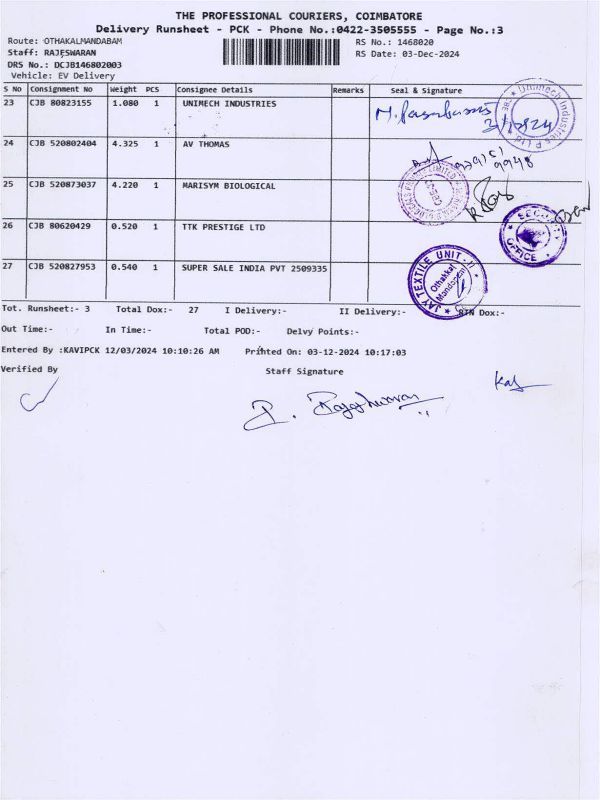 THE PROFESSIONAL COURIERS, COIMBATORE
Delivery Runsheet - PCK - Phone No.:0422-3505555 - Page No.:3
Route: OTHAKALMANDABAM RS No.: 1468020
Staff: RAJESWARAN RS Date: 03-Dec-2024
DRS No.: DCJB146802003
Vehicle: EV Delivery
S No Consignment No Weight PCS Consignee Details Remarks Seal & Signature
23 CJB 80823155 1.080 1 UNIMECH INDUSTRIES
Unimech Industries P Ltd
24 CJB 520802404 4.325 1 AV THOMAS
9948
25 CJB 520873037 4.220 1 MARISYM BIOLOGICAL
26 CJB 80620429 0.520 1 TTK PRESTIGE LTD
OFFICE
27 CJB 520827953 0.540 1 SUPER SALE INDIA PVT 2509335
JAY TEXTILE UNIT-II
Othakkal
Mandapam
Tot. Runsheet:- 3 Total Dox:- 27 I Delivery:- II Delivery:- RTN Dox:-
Out Time:- In Time:- Total POD:- Delvy Points:-
Entered By :KAVIPCK 12/03/2024 10:10:26 AM Printed On: 03-12-2024 10:17:03
Verified By Staff Signature
R. Rajeshwaran